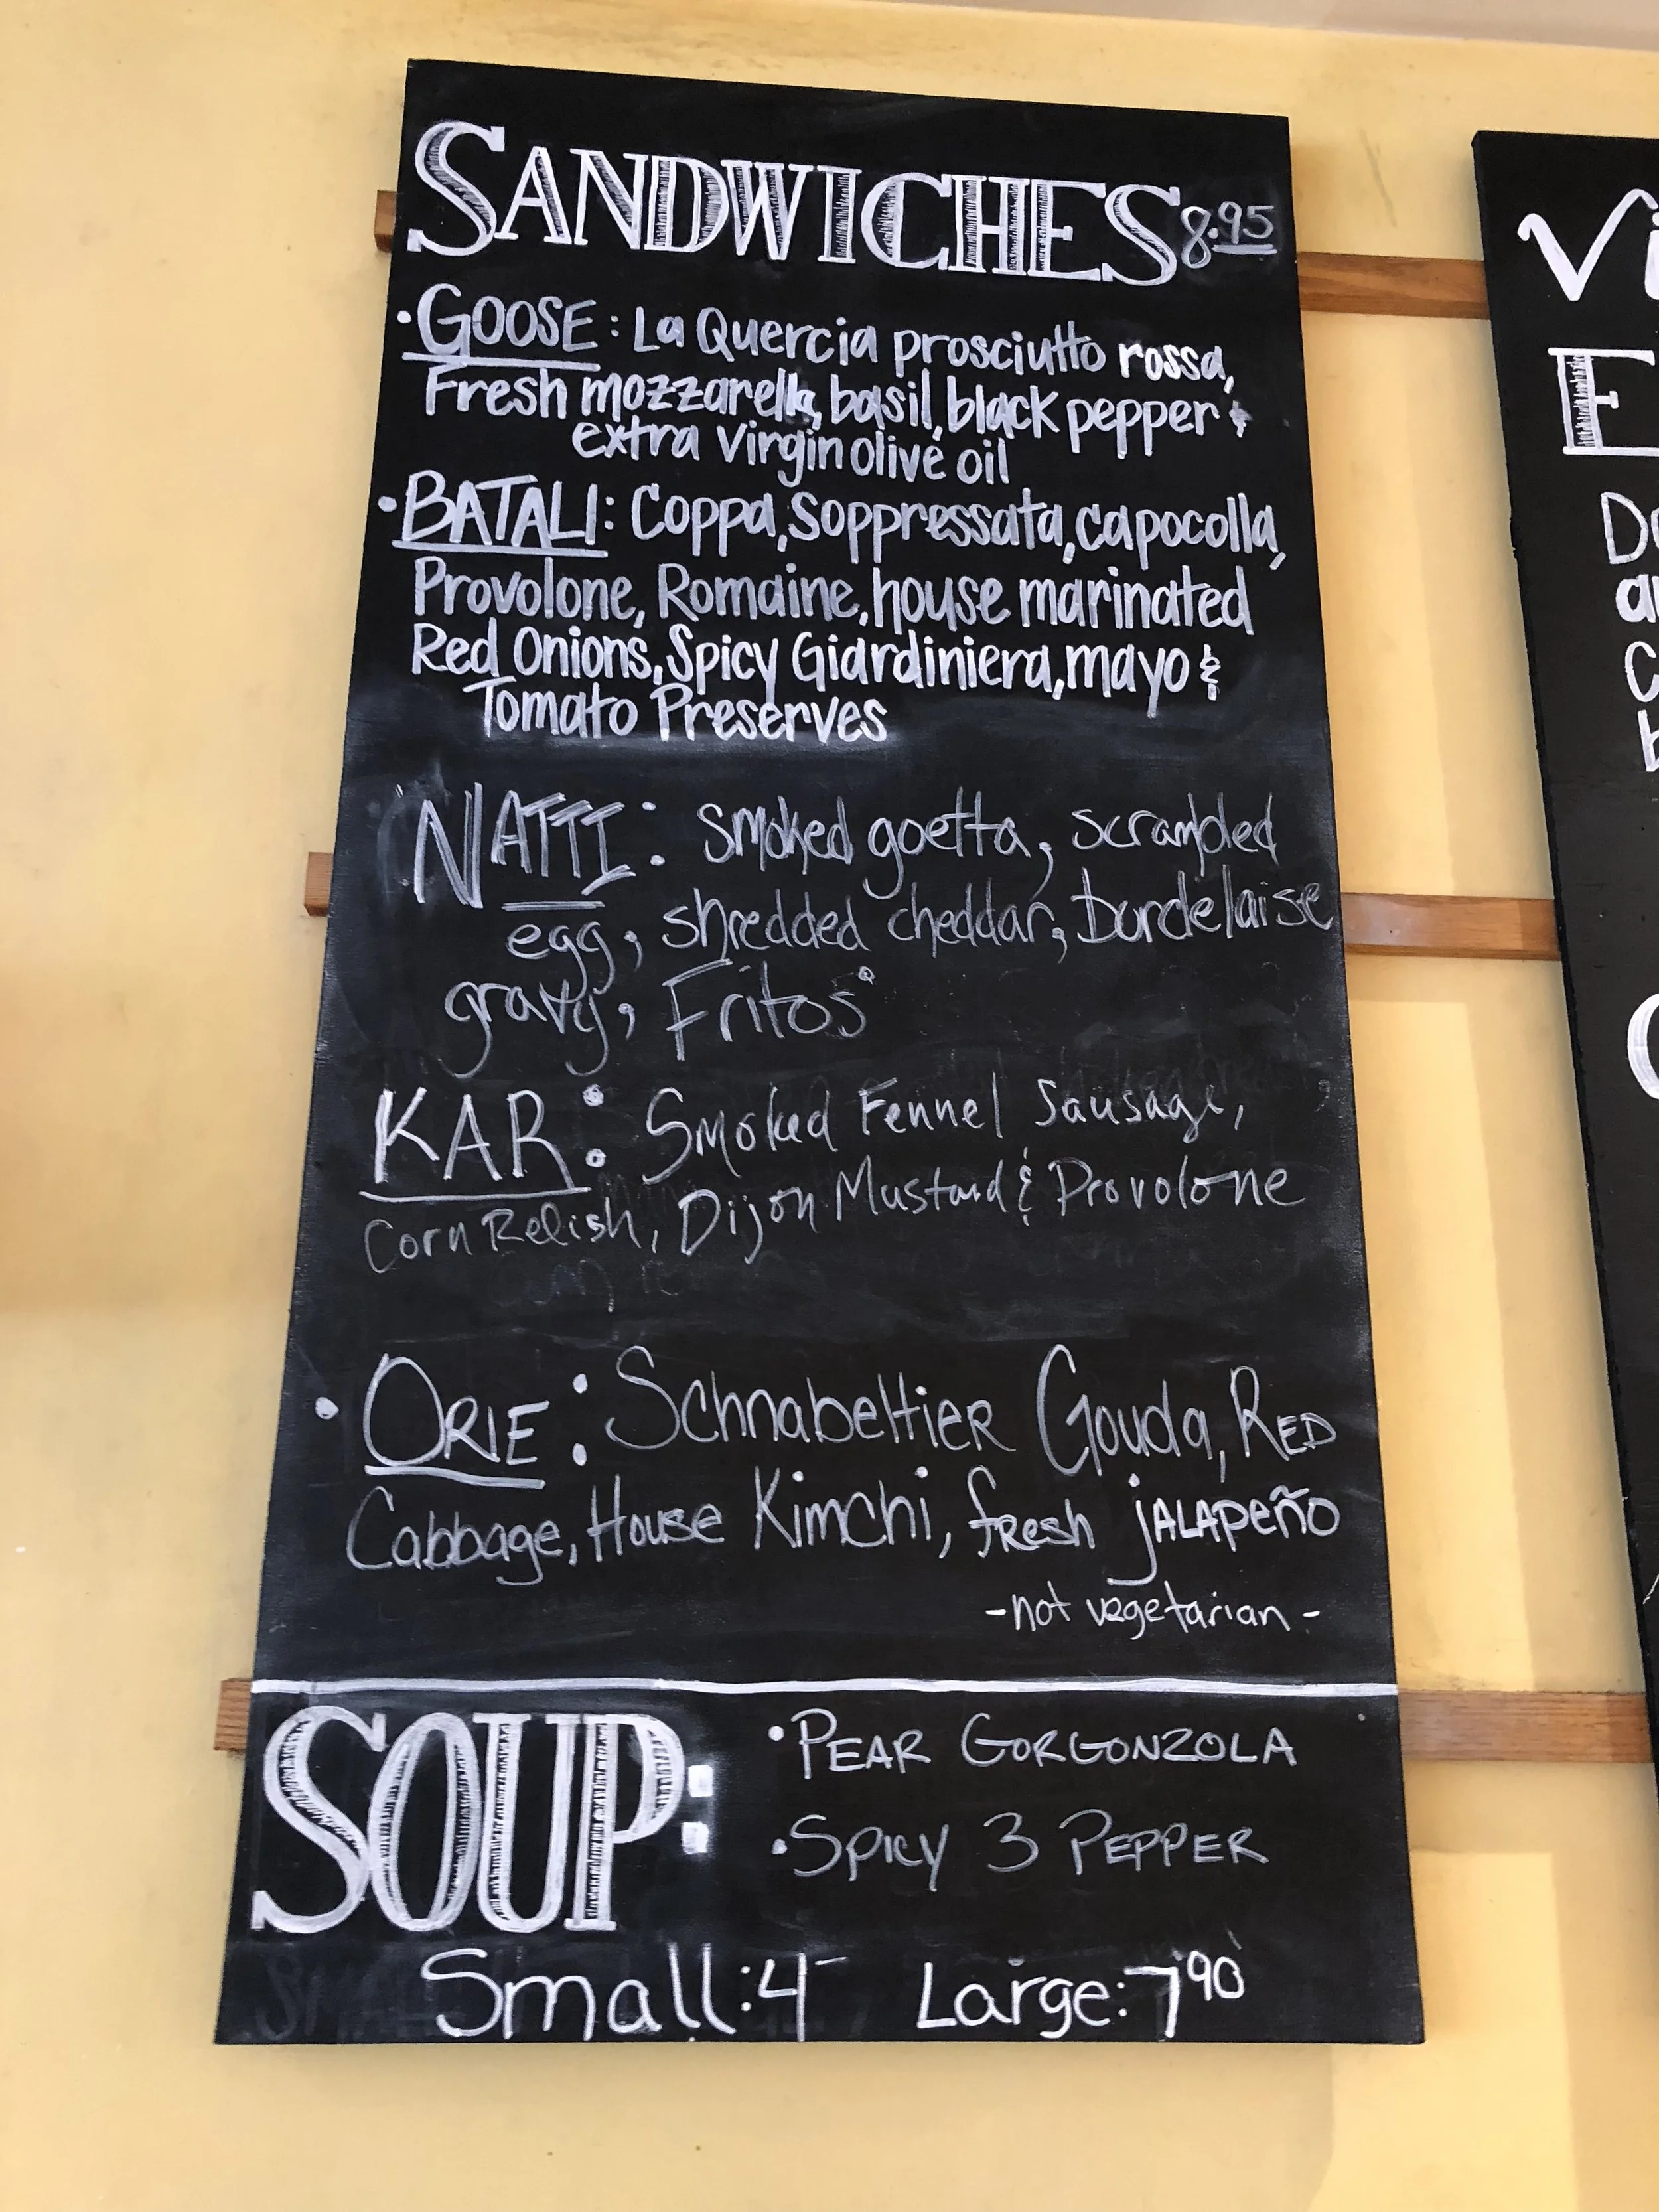 SANDWICHES 8.95
• GOOSE: La Quercia prosciutto rossa,
Fresh mozzarella, basil, black pepper &
extra virgin olive oil
• BATALI: Coppa, Soppressata, capocolla,
Provolone, Romaine, house marinated
Red Onions, Spicy Giardiniera, mayo &
Tomato Preserves
NATTI: Smoked goetta, scrambled
egg, shredded cheddar, bordelaise
gravy, Fritos
KAR: Smoked Fennel Sausage,
Corn Relish, Dijon Mustard & Provolone
• ORIE: Schnabeltier Gouda, RED
Cabbage, House Kimchi, fresh jALAPeño
-not vegetarian-
SOUP:
• PEAR GORGONZOLA
• SPICY 3 PEPPER
Small: 4- Large: 7.90
Vi
E